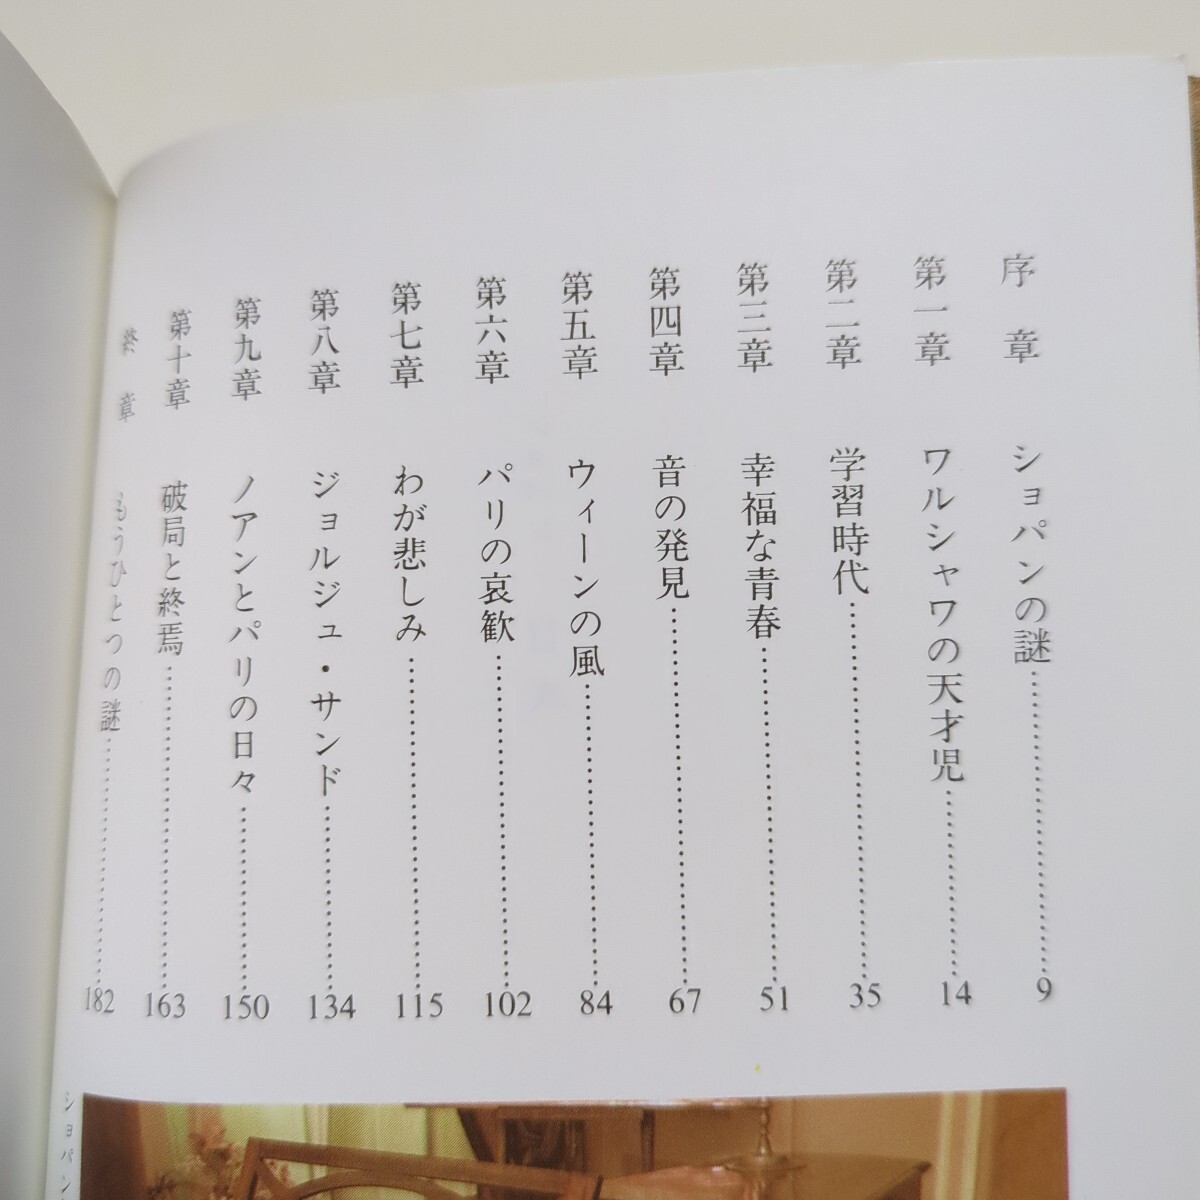 序章 ショパンの謎……………………9
第一章 ワルシャワの天才児……………………14
第二章 学習時代……………………35
第三章 幸福な青春……………………51
第四章 音の発見……………………67
第五章 ウィーンの風……………………84
第六章 パリの哀歓……………………102
第七章 わが悲しみ……………………115
第八章 ジョルジュ・サンド……………………134
第九章 ノアンとパリの日々……………………150
第十章 破局と終焉……………………163
終章 もうひとつの謎……………………182
ショパン